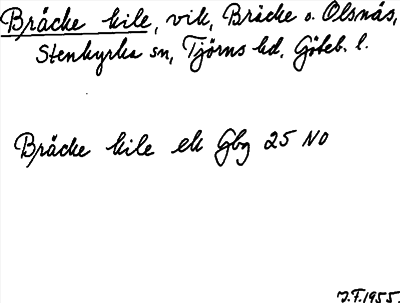 Bräcke kile, vik, Bräcke o. Olsnäs,
Stenkyrka sn, Tjörns hd, Göteb. l.
Bräcke kile ek Gbg 25 NO
J.F. 1955.